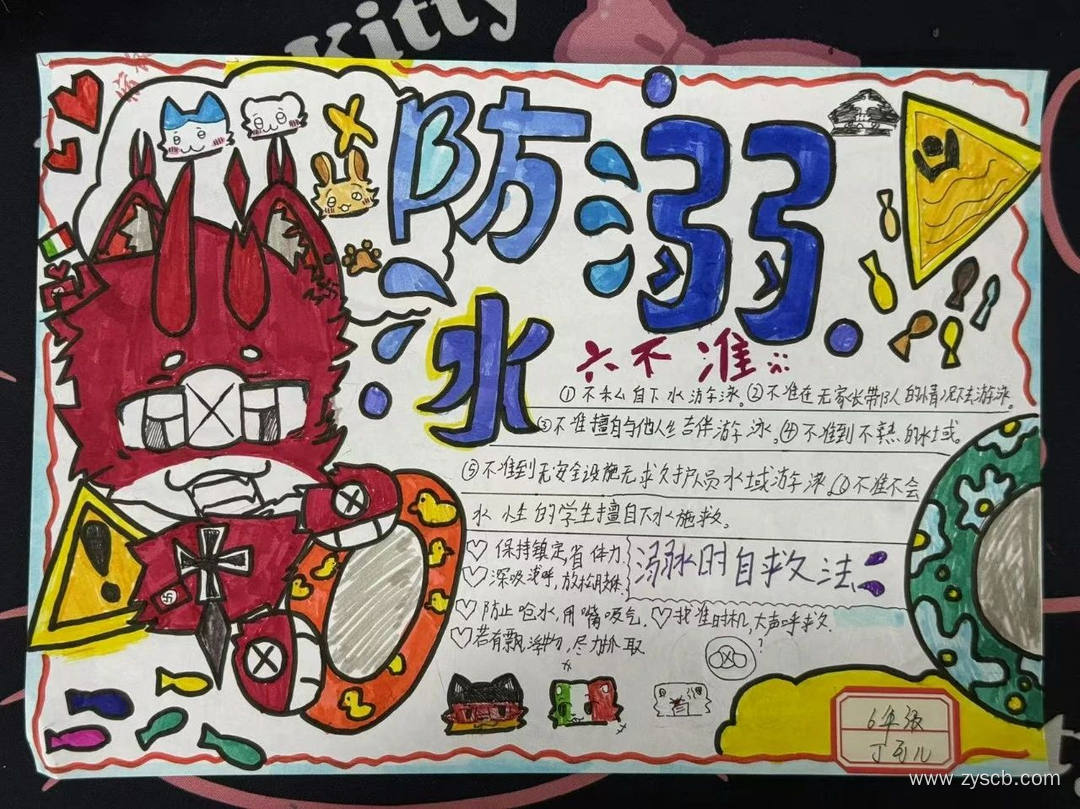 Kitty
防溺
水
六不准
①不私自下水游泳。②不准在无家长带队的情况下去游泳。
③不准擅自与他人结伴游泳。④不准到不熟的水域。
⑤不准到无安全设施无求救护员水域游泳。⑥不准不会
水性的学生擅自下水施救。
溺水时自救法
♡保持镇定,省体力
♡深吸浅呼,放松肢体
♡防止呛水,用嘴吸气。♡找准时机,大声呼救.
♡若有飘浮物,尽力抓取
?
6年级
www.zyscb.com